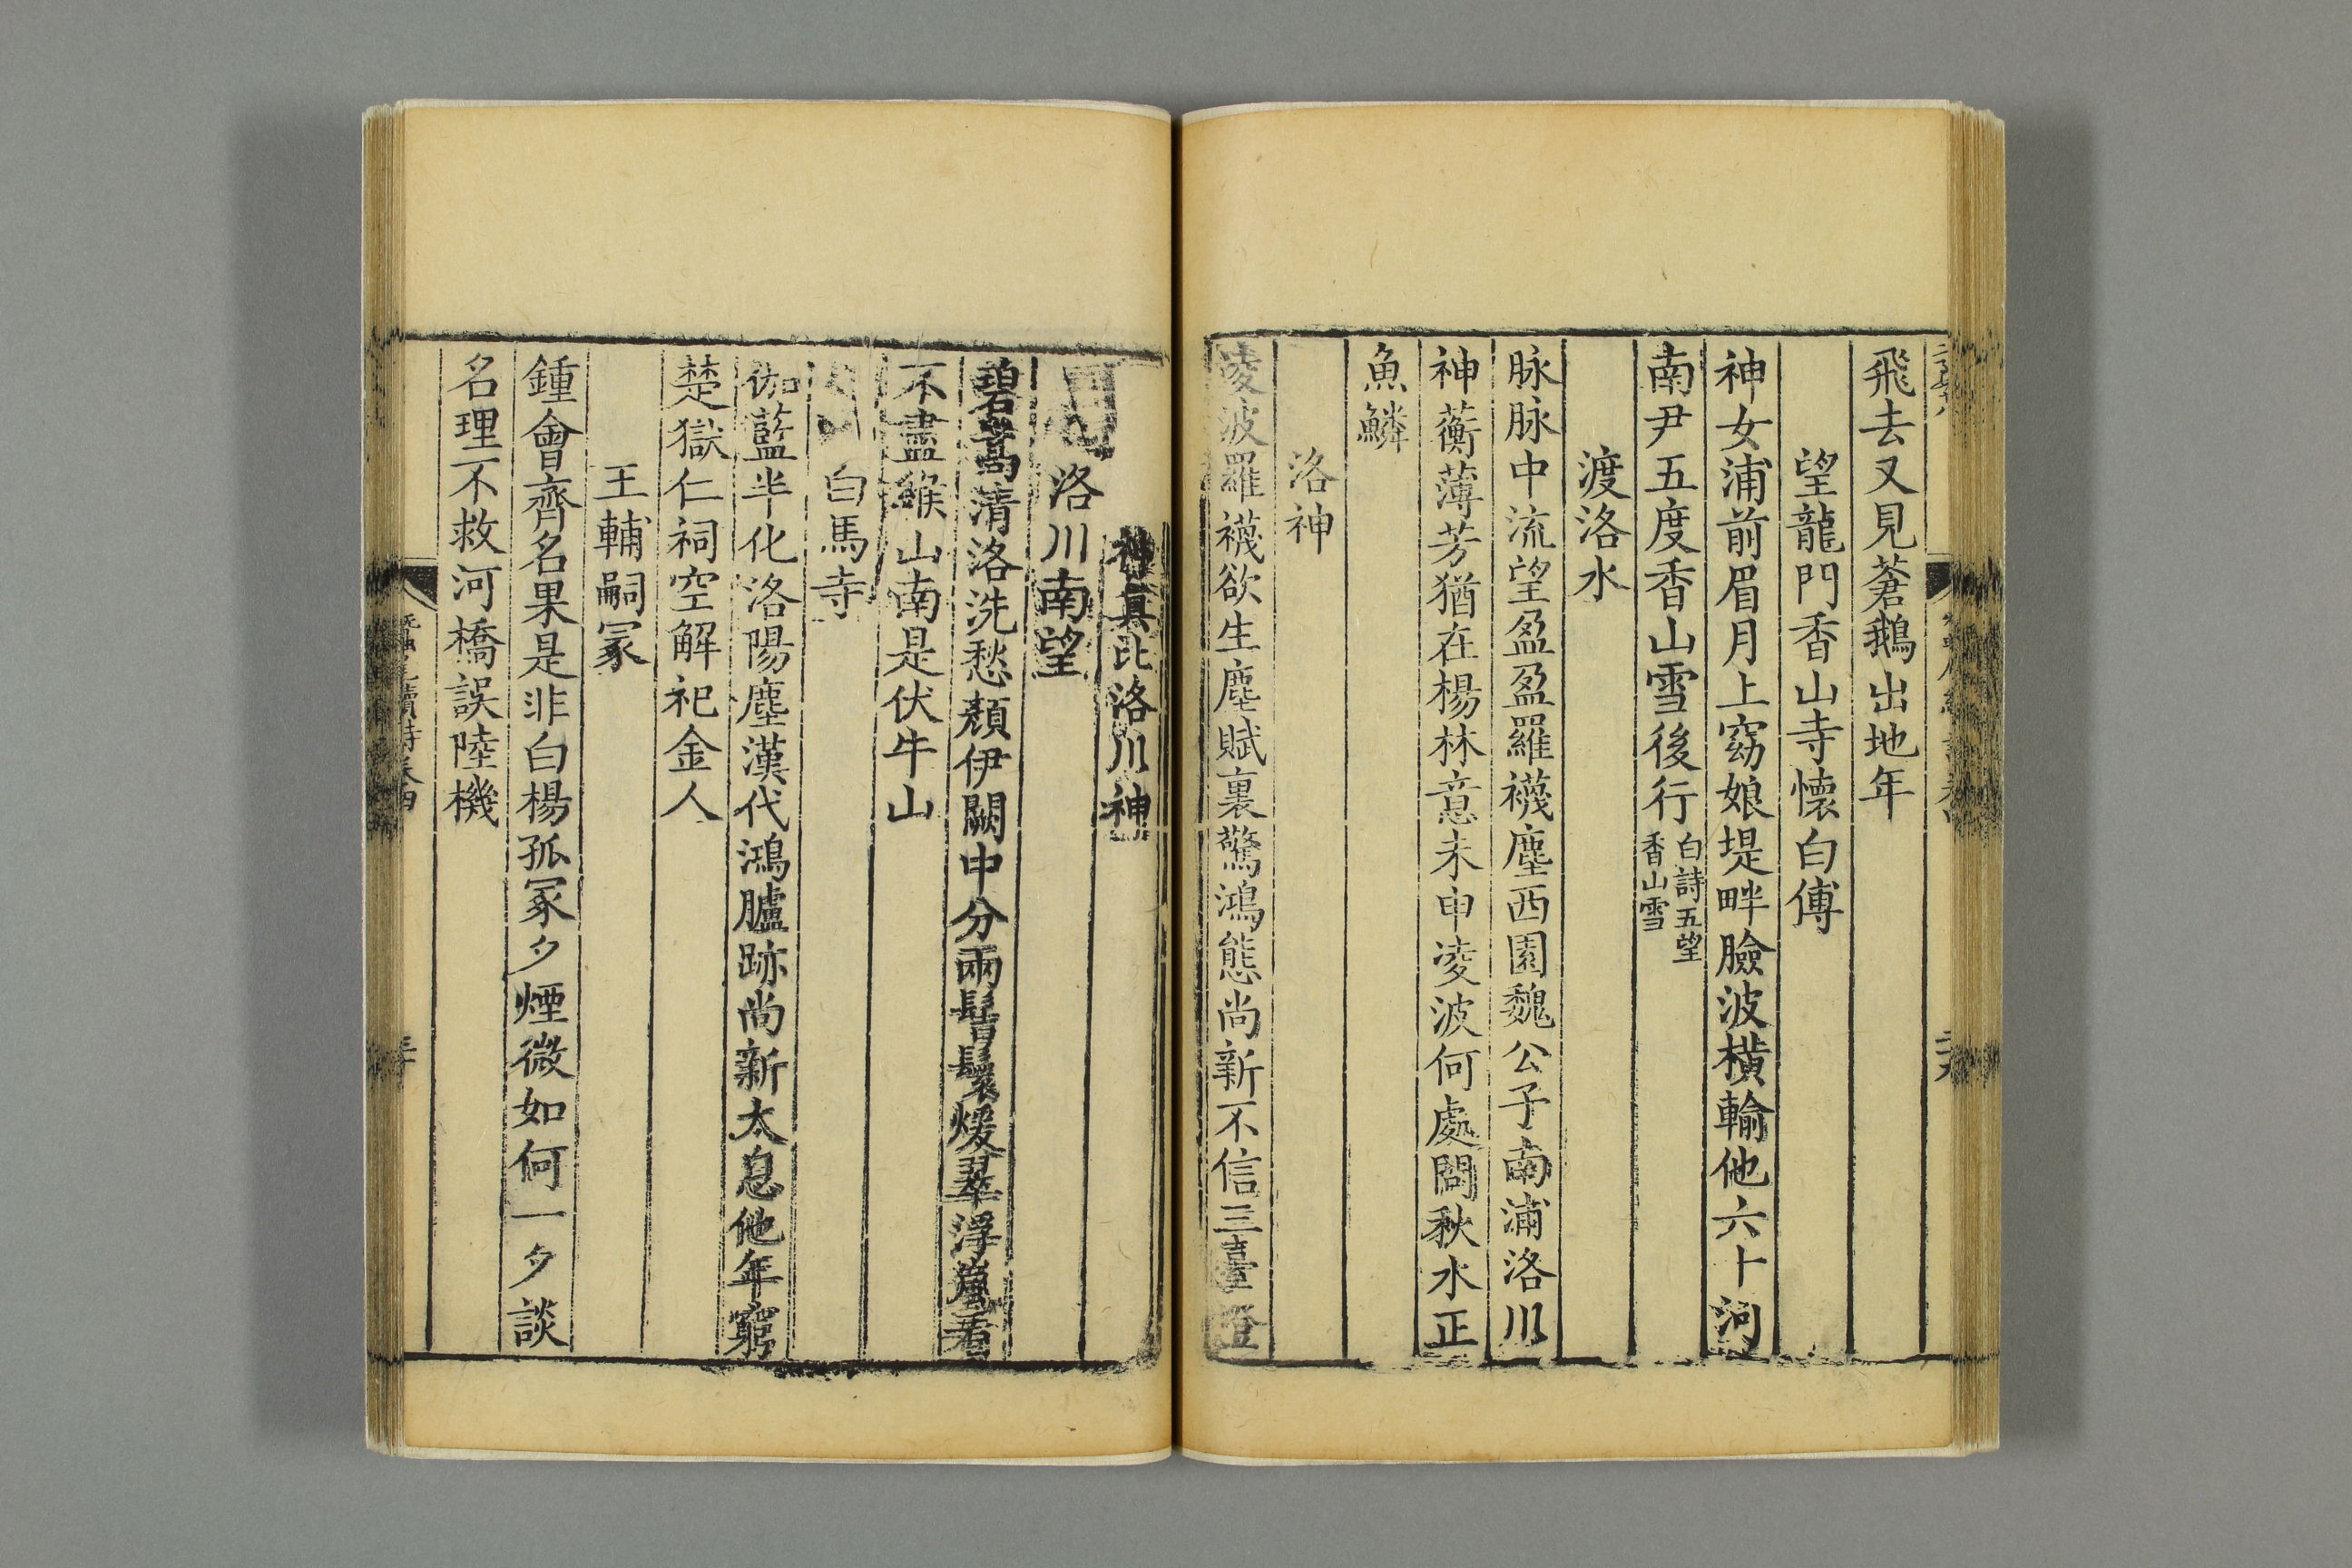 飛去又見蒼鵝出地年
望龍門香山寺懷白傅
神女浦前眉月上窈娘堤畔臉波橫輸他六十河
南尹五度香山雪後行白詩五望
香山雪
渡洛水
脉脉中流望盈盈羅襪塵西園魏公子南浦洛川
神蘅薄芳猶在楊林意未申凌波何處問秋水正
魚鱗
洛神
凌波羅襪欲生塵賦裏驚鴻態尚新不信三臺澄
真比洛川神
洛川南望
碧嵩清洛洗愁顏伊闕中分兩髻鬟煖翠浮嵐看
不盡緱山南是伏牛山
白馬寺
伽藍半化洛陽塵漢代鴻臚跡尚新太息他年窮
楚獄仁祠空解祀金人
王輔嗣冢
鍾會齊名果是非白楊孤冢夕煙微如何一夕談
名理不救河橋誤陸機